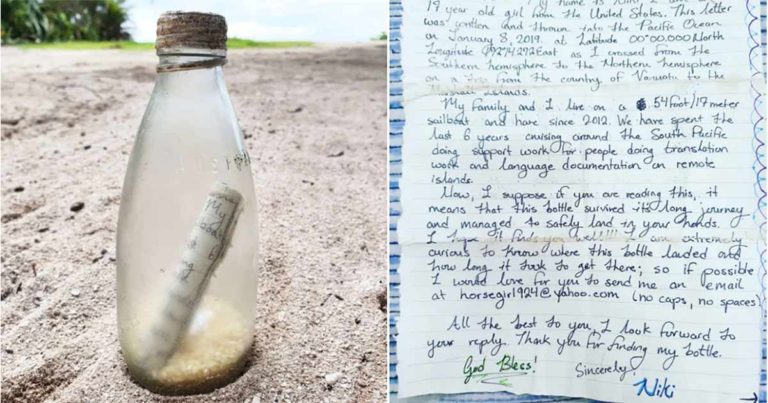 My name is Niki I am a
19 year old girl from the United States. This letter
was written and thrown into the Pacific Ocean
on January 8, 2019. at Latitude 00°00.000 North
Longitude East as I crossed from the
Southern hemisphere to the Northern hemisphere
on a trip from the country of Vanuatu to the
Marshall Islands.
My family and I live on a 54 foot/17 meter
sailboat and have since 2012. We have spent the
last 6 years cruising around the South Pacific
doing support work for people doing translation
work and language documentation on remote
islands.
Now, I suppose if you are reading this, it
means that this bottle survived its long journey
and managed to safely land in your hands.
I hope it finds you well!!! I am extremely
curious to know where this bottle landed and
how long it took to get there; so if possible
I would love for you to send me an email
at horsegirl1924@yahoo.com (no caps, no spaces)
All the best to you, I look forward to
your reply. Thank you for finding my bottle.
God Bless!
Sincerely,
Niki